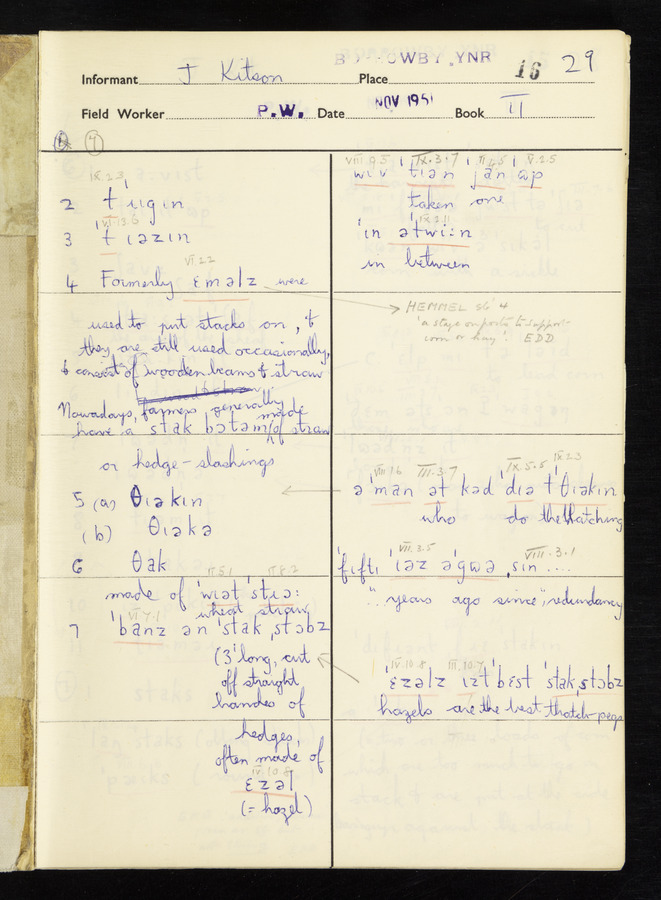 Informant J Kitson Place OWBY .YNR 16 29
Field Worker P.W. Date NOV 1951 Book II
7
IX.2.3
2 t'ıɩgın
VI.13.6
3 'tıəzın
VI.2.2
4 Formerly ɛməlz were
used to put stacks on, &
they are still used occasionally,
& consist of wooden beams & straw
Nowadays, farmers generally
have a stak bɔtəm made of straw
or hedge-slashings
5 (a) θıəkın
(b) θıəkə
6 θak
II.5.1 II.8.2
made of 'wıət 'stıə:
wheat straw
VI.7.1
7 'banz ən 'stak ˌstɔbz
(3' long, cut
off straight
handes of
hedges,
often made of
IV.10.8
ɛzəl
(= hazel)
VIII.9.5 IX.3.7 V.2.5
wıv tıən jan əp
taken one
IX.2.11
'ın ətwi:n
in between
HEMMEL sb' 4
'a stage on posts to support
corn or hay'. EDD
VIII.1.6 III.3.7 IX.5.5 IX.2.3
ə 'man ət kəd 'dıə t'θıəkın
who do the thatching
VII.3.5 VIII.3.1
'fıftı 'ıəz ə'gwə ˌsın ....
"years ago since", redundancy
IV.10.8 III.10.7
'ɛzəlz ızt 'bɛst 'stakˌstɔbz
hazels are the best thatch-pegs